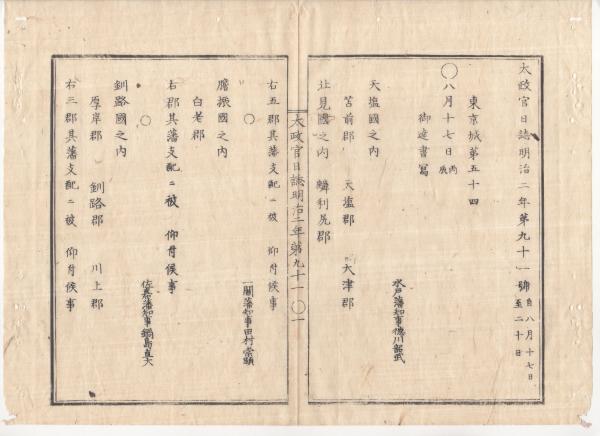 太政官日誌明治二年第九十一號 自八月十七日至二十日
東京城第五十四
○八月十七日 丙辰
御達書寫
水戸藩知事徳川昭武
天塩國之内
苫前郡 天塩郡 天津郡
北見國之内 利尻郡
右五郡其藩支配ニ被 仰付候事
太政官日誌明治二年第九十一 ○一
○
一關藩知事田村崇顯
膽振國之内
白老郡
右郡其藩支配ニ被 仰付候事
○
佐嘉藩知事鍋島直大
釧路國之内
厚岸郡 釧路郡 川上郡
右三郡其藩支配ニ被 仰付候事